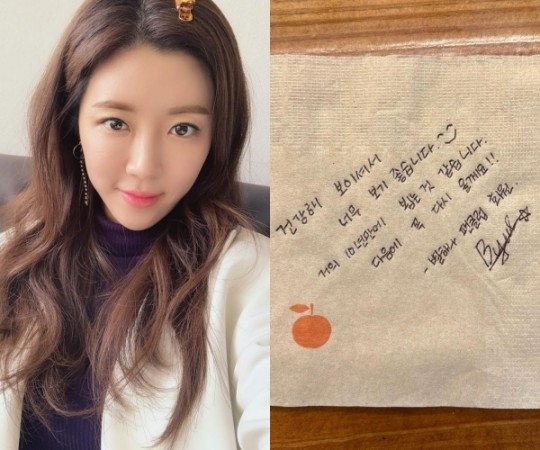 건강해 보이셔서
너무 보기 좋습니다.
거의 10년만에 뵙는 것 같습니다.
다음에 꼭 다시 올게요!!
- 별하나 팬클럽 회원